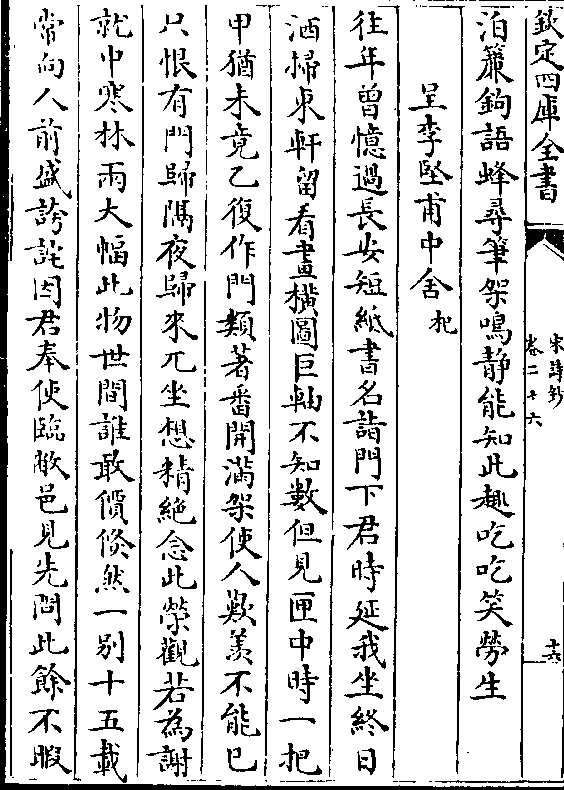 欽定四庫全書
宋詩鈔
卷二十六
十六
泊簾鉤語蜂尋筆架鳴静能知此趣吃吃笑勞生
呈李堅甫中舍 𣏌
往年曾憶過長安短紙書名詣門下君時延我坐終日
洒掃東軒留看畫横圖巨軸不知數但見匣中時一把
甲猶未竟乙復作門類著番開滿架使人歎羨不能已
只恨有門歸隔夜歸來兀坐想精絶念此榮觀若為謝
就中寒林兩大幅此物世間誰敢價倐然一别十五載
常向人前盛誇詫因君奉使臨敝邑見先問此餘不暇